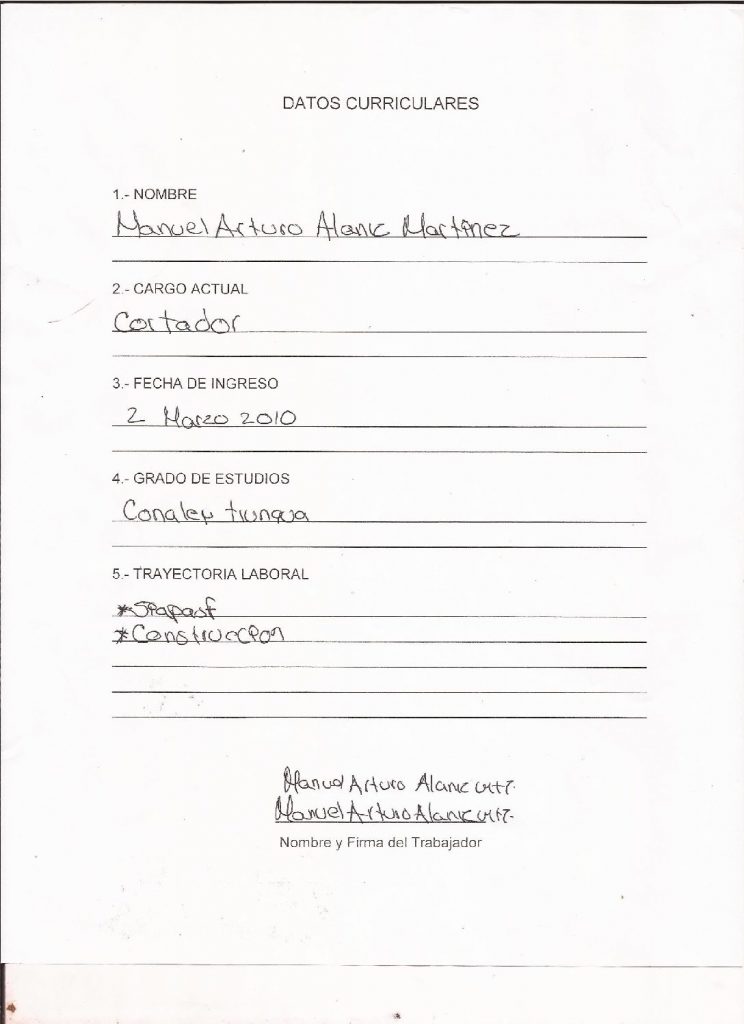 DATOS CURRICULARES
1.- NOMBRE
Manuel Arturo Alanic Martinez
2.- CARGO ACTUAL
Cortador
3.- FECHA DE INGRESO
2 Marzo 2010
4.- GRADO DE ESTUDIOS
Conalep
5.- TRAYECTORIA LABORAL
*SPapaf
*Construccion
Manuel Arturo Alanic
Manuel Arturo Alanic
Nombre y Firma del Trabajador